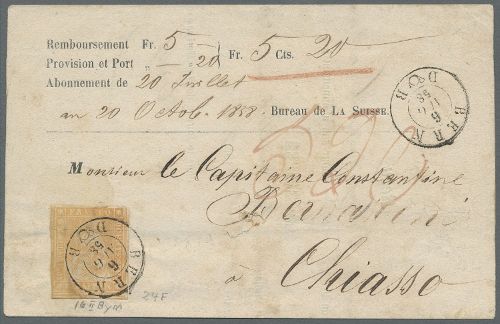 Remboursement Fr. 5 –
Provision et Port „ – 20
Fr. 5 Cts. 20
Abonnement de 20 Juillet
au 20 Octob. 1858. Bureau de LA SUISSE.
BERN
D & R
Monsieur le Capitaine Constantine
à
Chiasso
BERN
D & R
16 II Bym
24F